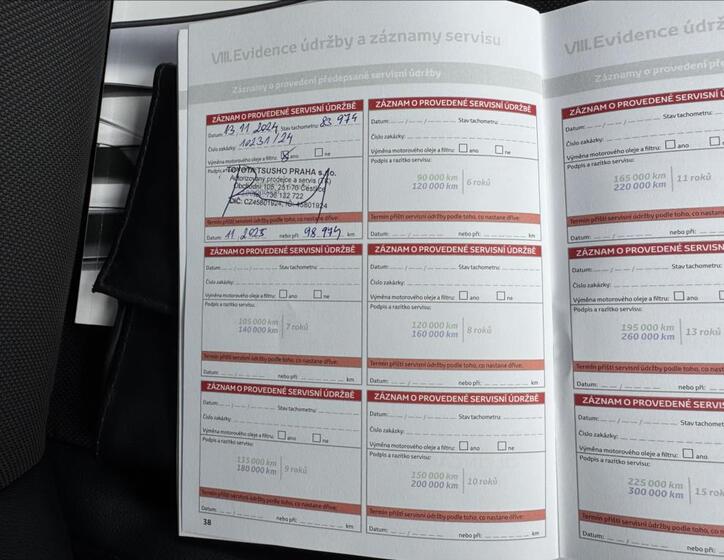 VIII. Evidence údržby a záznamy servisu
Záznamy o provedení předepsané servisní údržby
ZÁZNAM O PROVEDENÉ SERVISNÍ ÚDRŽBĚ
Datum: 13.11.2024 Stav tachometru: 83 974
Číslo zakázky: 10231/24
Výměna motorového oleje a filtru: ano ne
Podpis a
TOYOTA TSUSHO PRAHA s.r.o.
Autorizovaný prodejce a servis
Obchodní 105, 251 70 Čestlice
DIČ: CZ45801924, IČ: 45801924
Termín příští servisní údržby podle toho, co nastane dříve:
Datum: 11.2025 nebo při: 98.974 km
ZÁZNAM O PROVEDENÉ SERVISNÍ ÚDRŽBĚ
Datum: Stav tachometru:
Číslo zakázky:
Výměna motorového oleje a filtru: ano ne
Podpis a razítko servisu:
90 000 km
120 000 km
6 roků
Termín příští servisní údržby podle toho, co nastane dříve:
Datum: nebo při: km
ZÁZNAM O PROVEDENÉ SERVISNÍ ÚDRŽBĚ
Datum: Stav tachometru:
Číslo zakázky:
Výměna motorového oleje a filtru: ano ne
Podpis a razítko servisu:
105 000 km
140 000 km
7 roků
Termín příští servisní údržby podle toho, co nastane dříve:
Datum: nebo při: km
ZÁZNAM O PROVEDENÉ SERVISNÍ ÚDRŽBĚ
Datum: Stav tachometru:
Číslo zakázky:
Výměna motorového oleje a filtru: ano ne
Podpis a razítko servisu:
120 000 km
160 000 km
8 roků
Termín příští servisní údržby podle toho, co nastane dříve:
Datum: nebo při: km
ZÁZNAM O PROVEDENÉ SERVISNÍ ÚDRŽBĚ
Datum: Stav tachometru:
Číslo zakázky:
Výměna motorového oleje a filtru: ano ne
Podpis a razítko servisu:
135 000 km
180 000 km
9 roků
Termín příští servisní údržby podle toho, co nastane dříve:
Datum: nebo při: km
ZÁZNAM O PROVEDENÉ SERVISNÍ ÚDRŽBĚ
Datum: Stav tachometru:
Číslo zakázky:
Výměna motorového oleje a filtru: ano ne
Podpis a razítko servisu:
150 000 km
200 000 km
10 roků
Termín příští servisní údržby podle toho, co nastane dříve:
Datum: nebo při: km
38
VIII. Evidence údrž
Záznamy o provedení pře
ZÁZNAM O PROVEDENÉ SERVISN
Datum: Stav tachomet
Číslo zakázky:
Výměna motorového oleje a filtru:
Podpis a razítko servisu:
165 000 km
220 000 km
11 roků
Termín příští servisní údržby podle toho, co nasta
Datum: nebo při:
ZÁZNAM O PROVEDENÉ SERVISN
Datum: Stav tachomet
Číslo zakázky:
Výměna motorového oleje a filtru:
Podpis a razítko servisu:
195 000 km
260 000 km
13 roků
Termín příští servisní údržby podle toho, co nast
Datum: nebo při:
ZÁZNAM O PROVEDENÉ SERVIS
Datum: Stav tachome
Číslo zakázky:
Výměna motorového oleje a filtru:
Podpis a razítko servisu:
225 000 km
300 000 km
15 rok
Termín příští servisní údržby podle toho, co nas
Datum: nebo při: